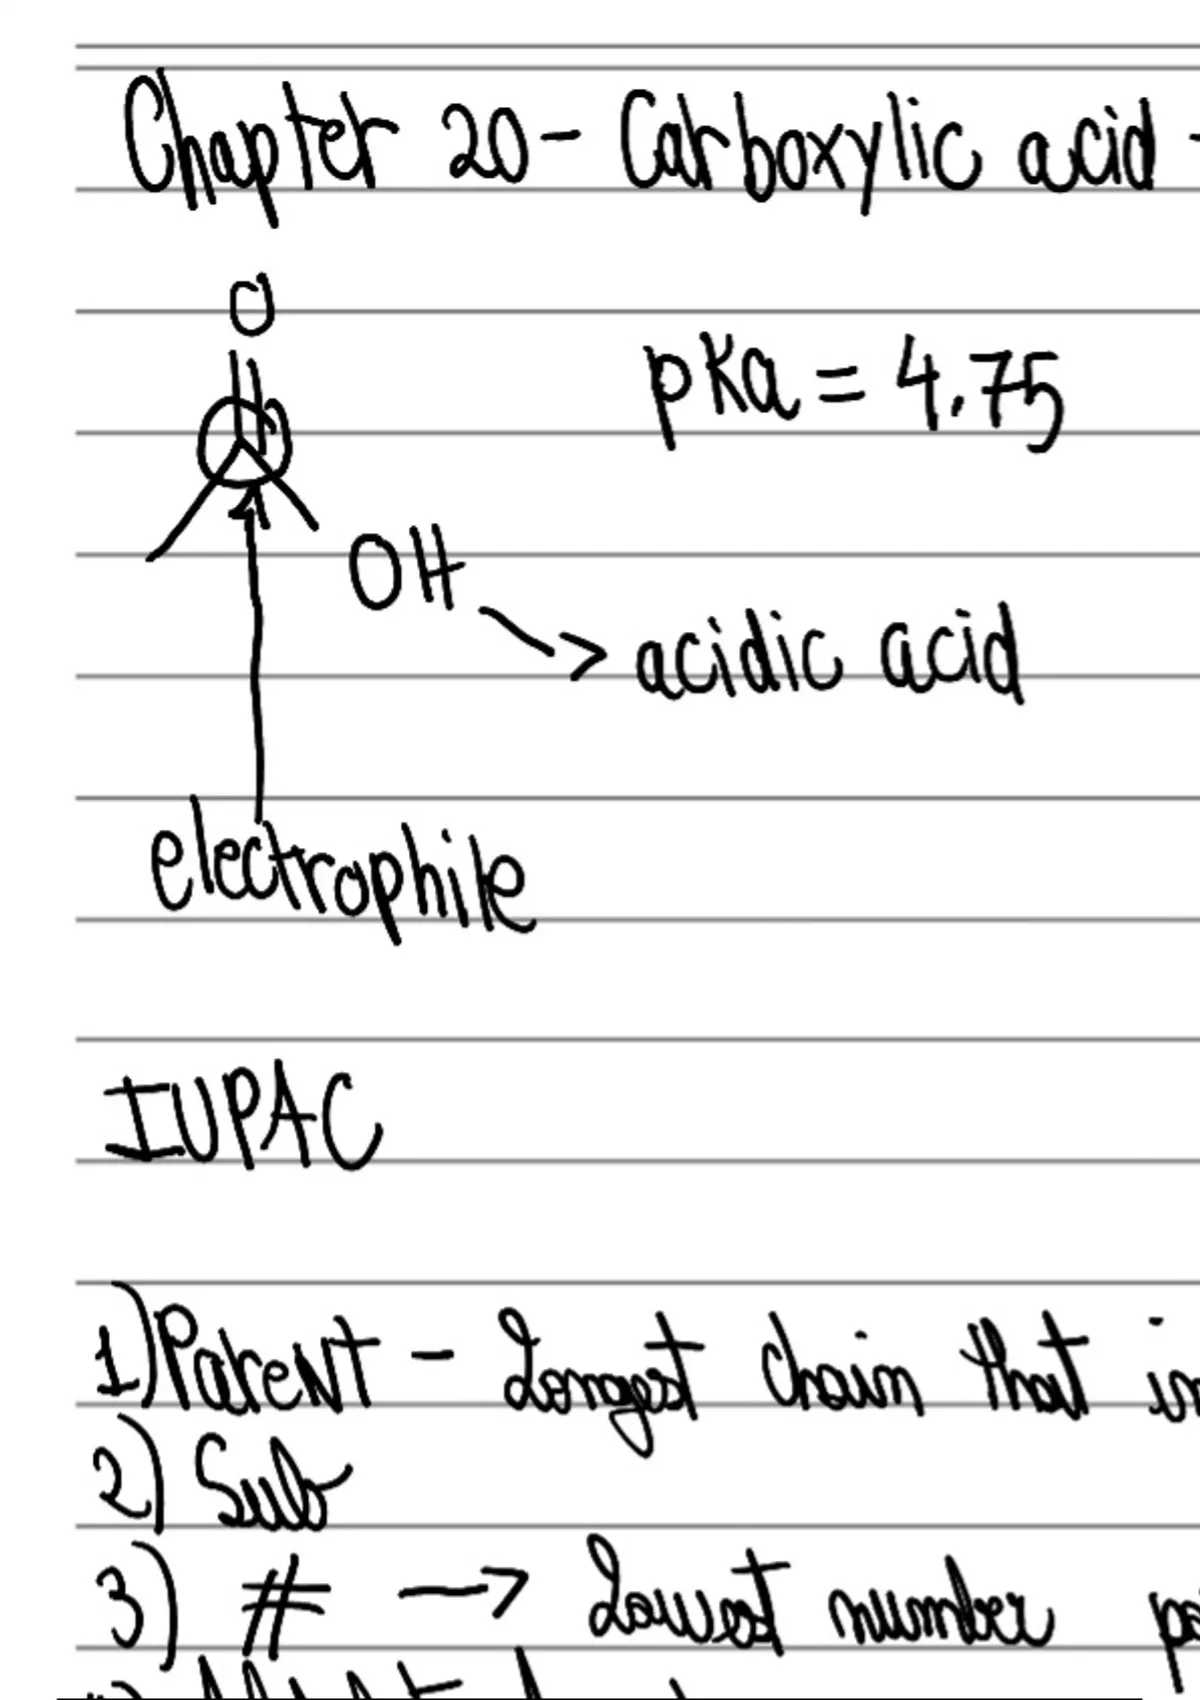 Chapter 20- Carboxylic acid -
O
pKa = 4.75
OH
acidic acid
electrophile
IUPAC
1) Parent - Longest chain that
2) Sub
3) # → Lowest number